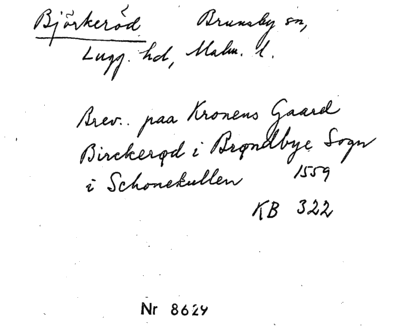 Björkeröd Brunnby sn,
Lugg. hd, Malm. l.
Brev.. paa Kronens Gaard
Birckerød i Brøndbye Sogn
i Schonekullen 1559
KB 322
Nr 8624